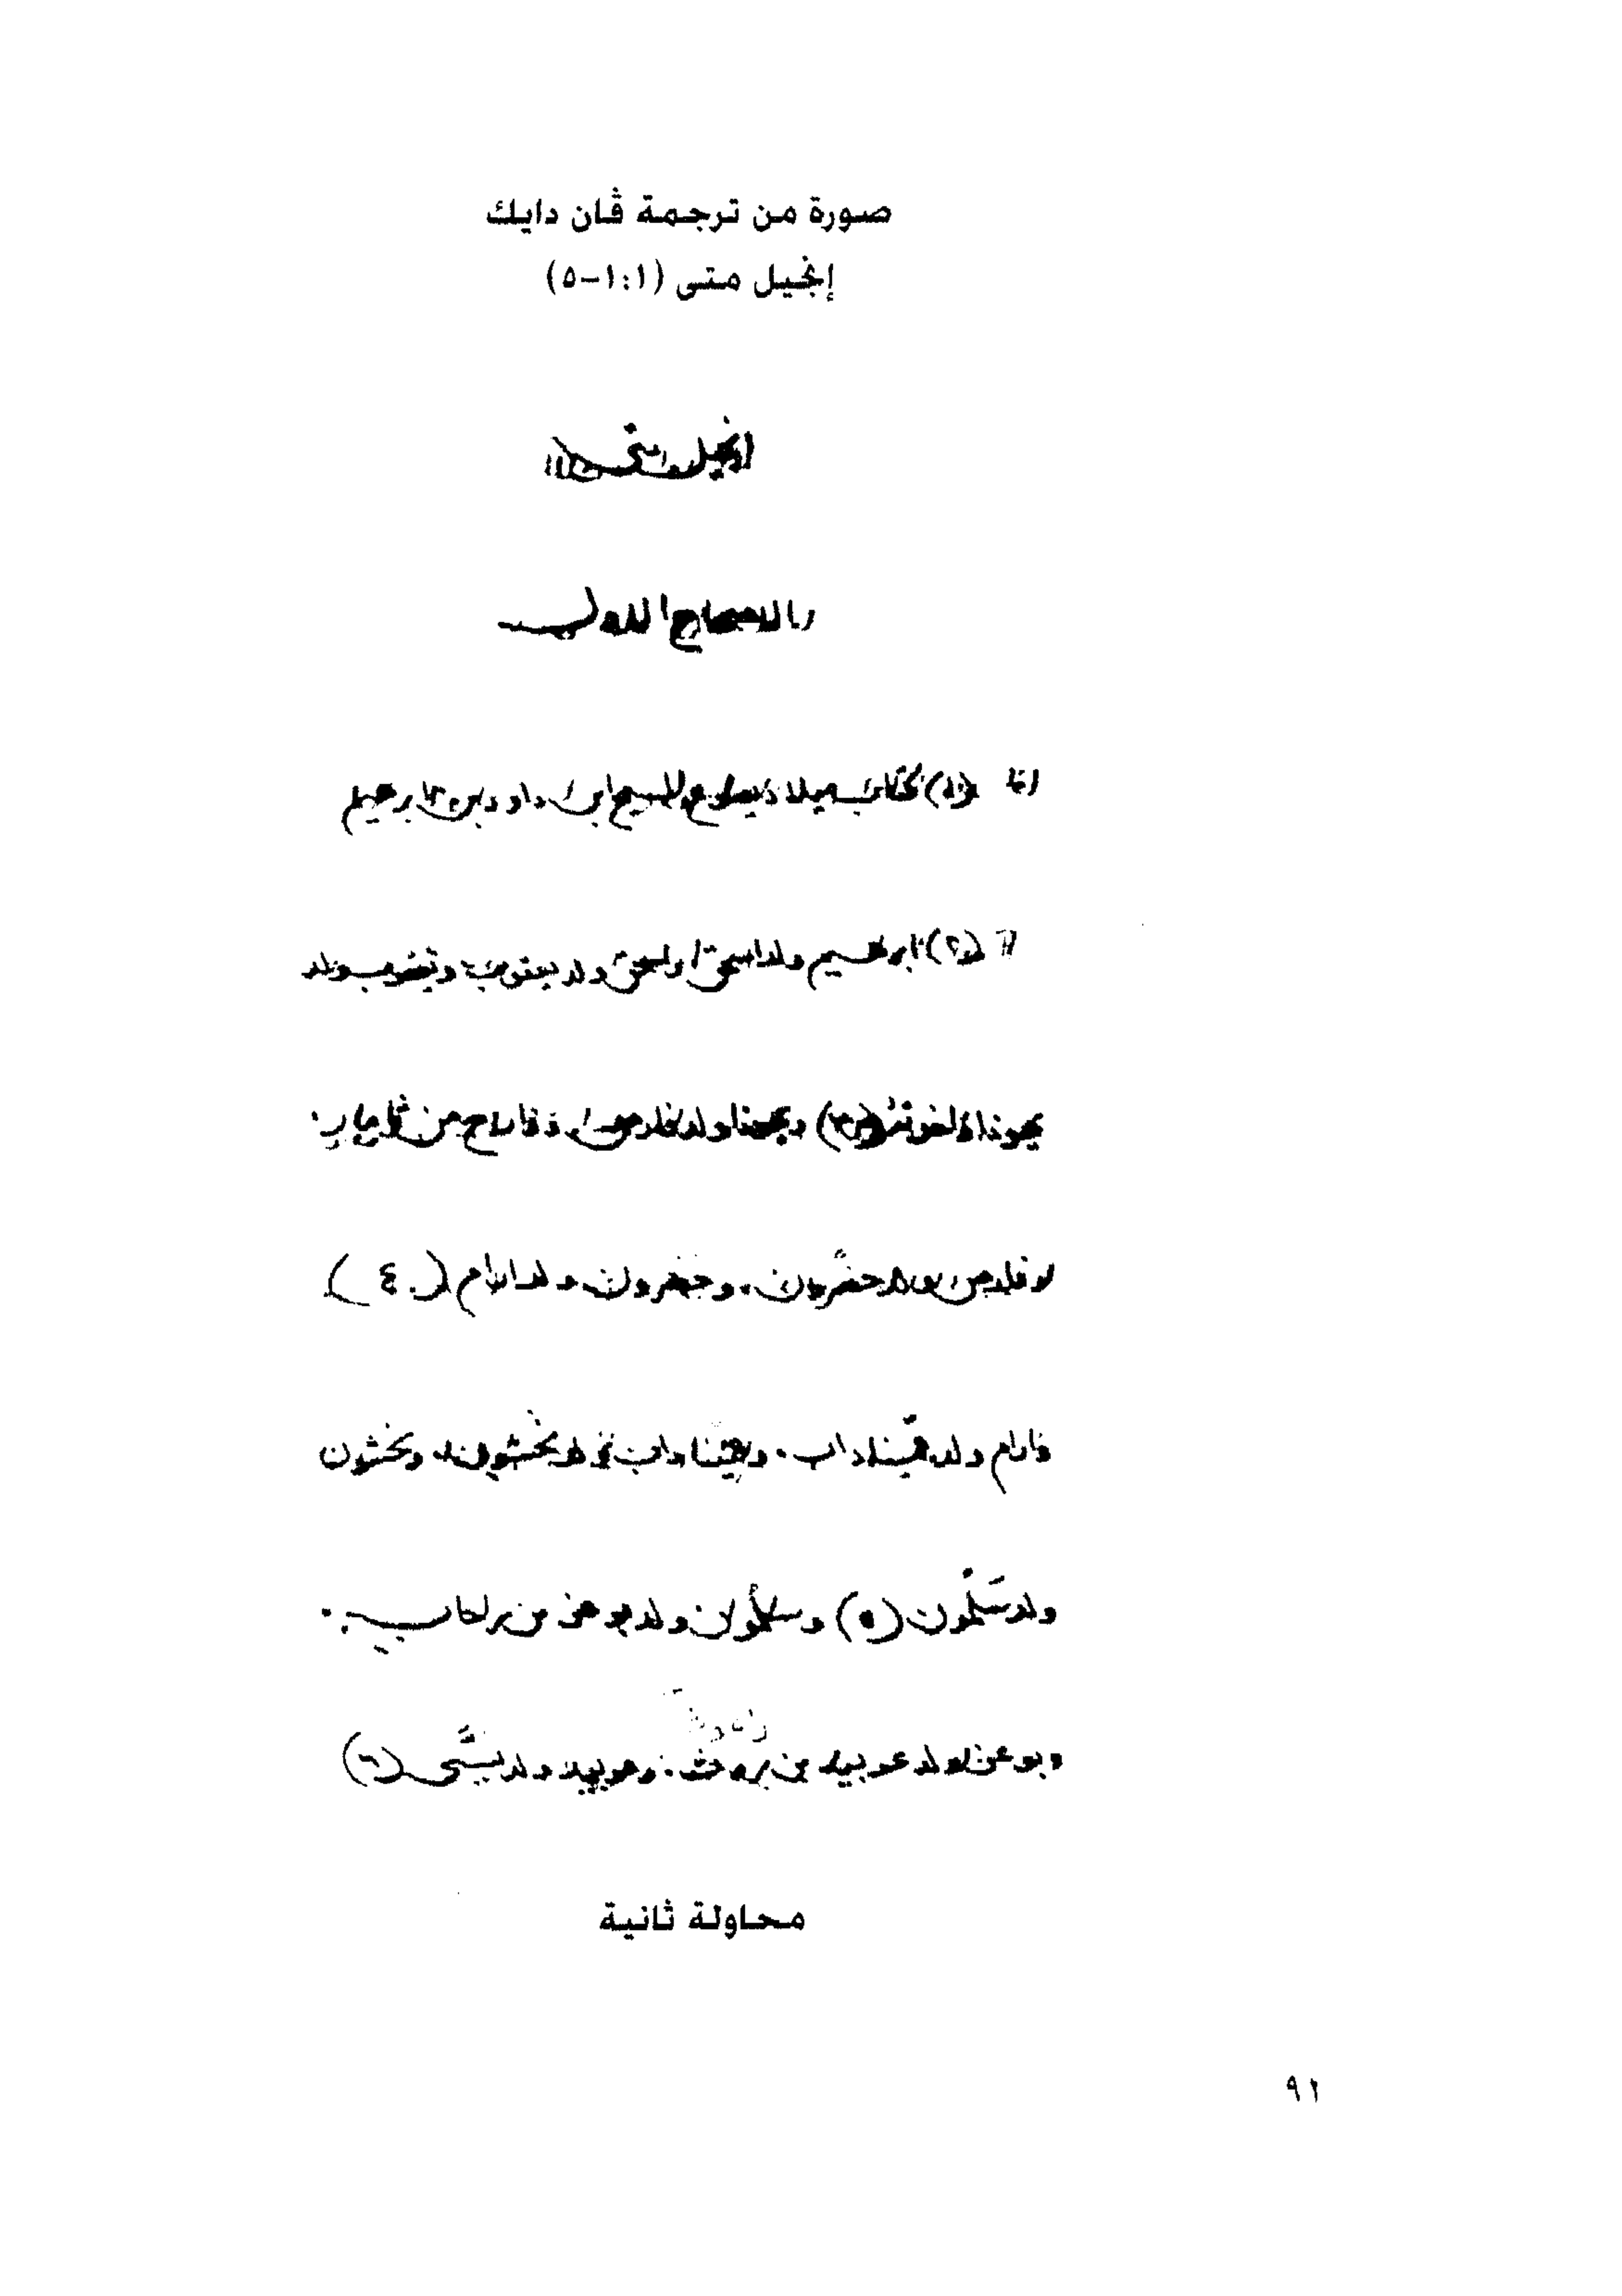 صورة من ترجمة ڤان دايك
إنجيل متى (١:١-٥)
انجيل متى
الاصحاح الاول
(١) كتاب ميلاد يسوع المسيح ابن داود بن ابرهيم
(٢) ابرهيم ولد اسحق واسحق ولد يعقوب ويعقوب ولد
يهوذا واخوته (٣) ويهوذا ولد فارص وزارح من ثامار.
وفارص ولد حصرون. وحصرون ولد ارام (٤)
وارام ولد عميناداب. وعميناداب ولد نحشون. ونحشون
ولد سَلْمون (٥) وسلمون ولد بوعز من راحاب.
وبوعز ولد عوبيد من راعوث. وعوبيد ولد يسَّى (٦)
محاولة ثانية
٩٢